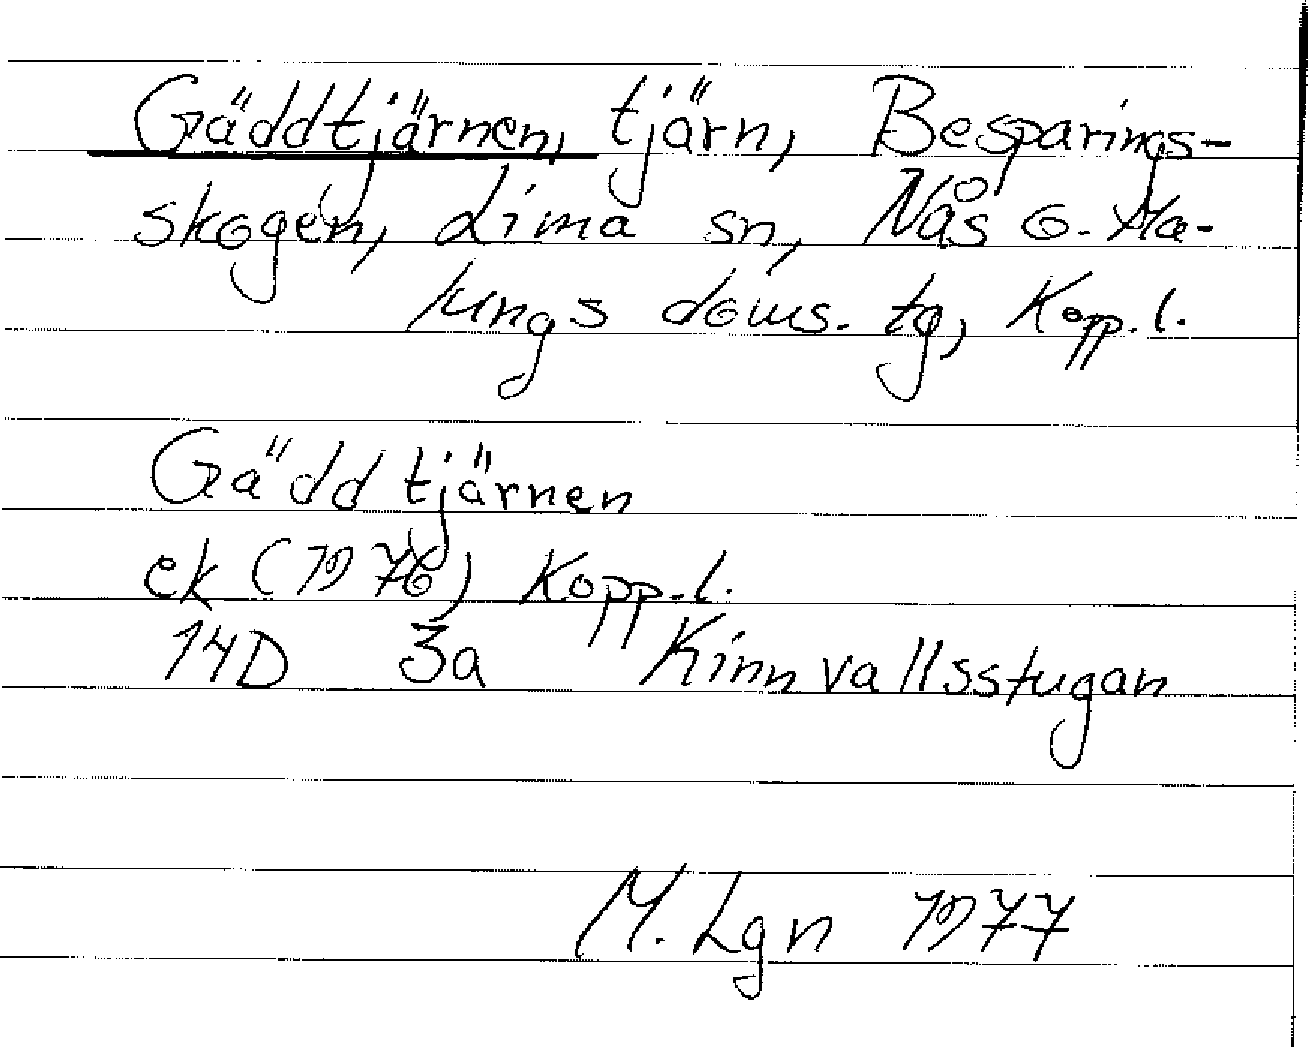 Gäddtjärnen, tjärn, Besparings-
skogen, Lima sn, Nås o. Ma-
lungs doms. tg, Kopp. l.
Gäddtjärnen
ek (1976) Kopp. l.
14D 3a Kinnvallsstugan
M. Lgn 1977